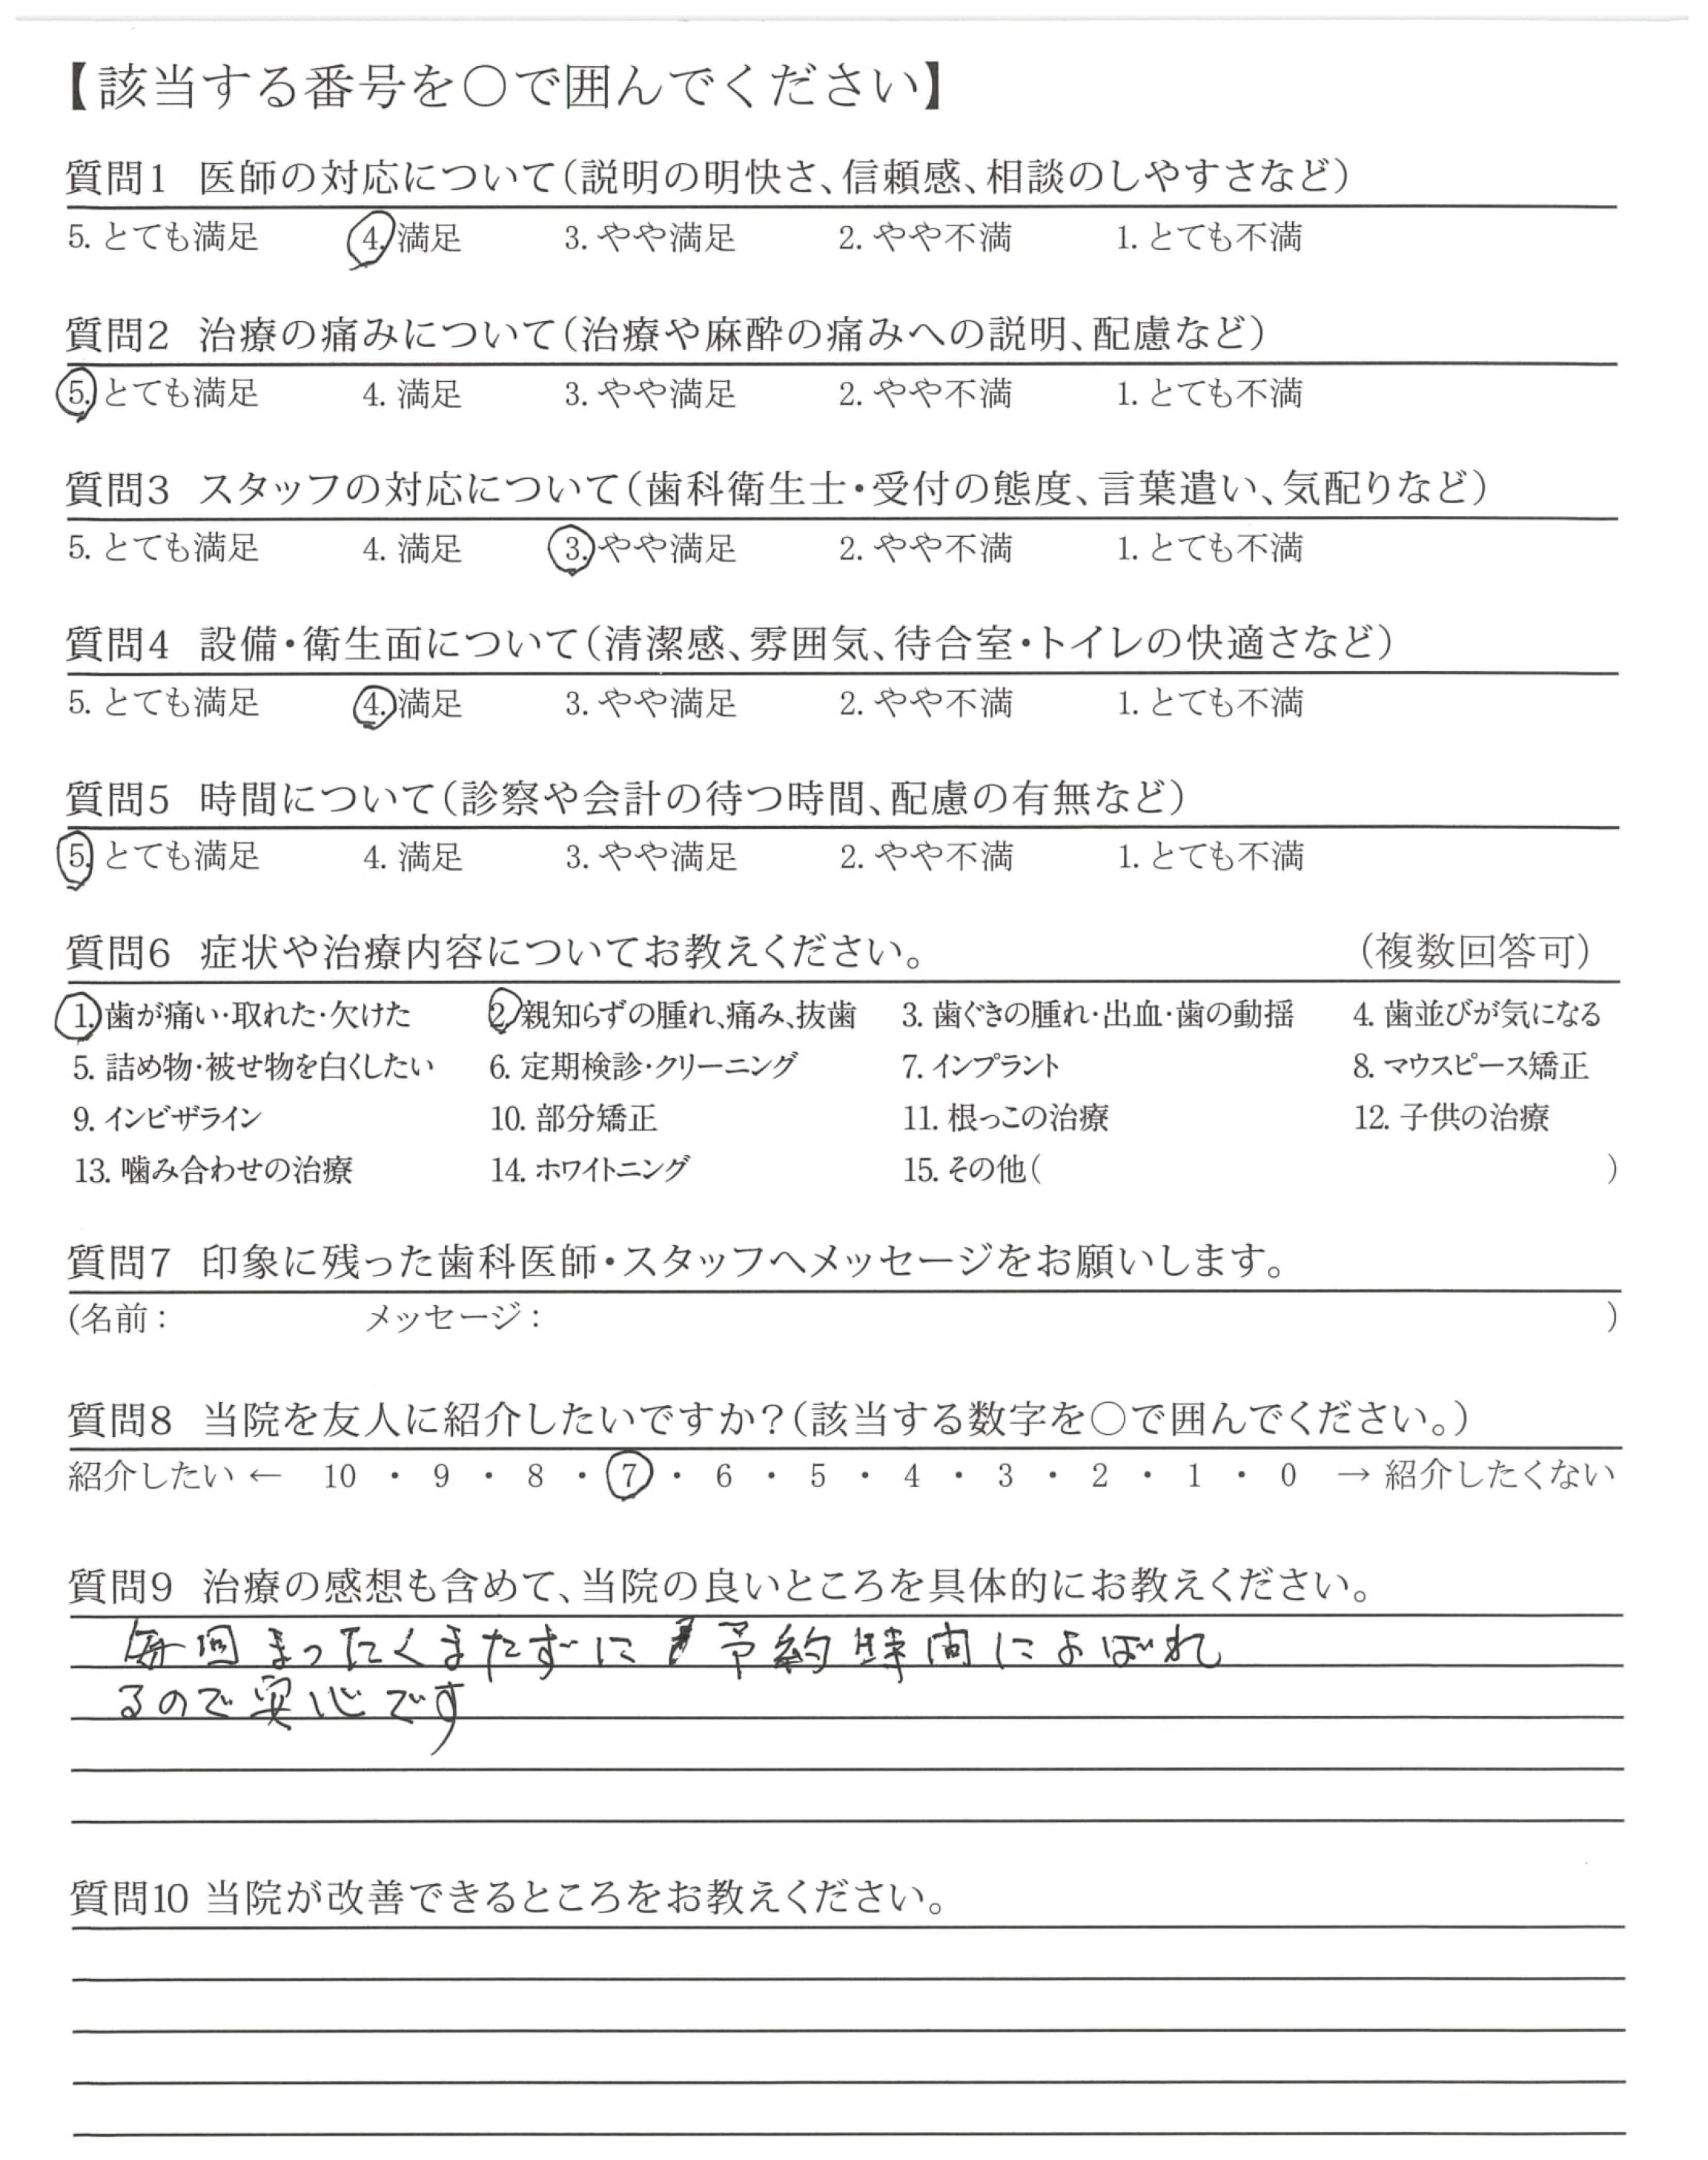 【該当する番号を〇で囲んでください】
質問1 医師の対応について(説明の明快さ、信頼感、相談のしやすさなど)
5. とても満足 4. 満足 3. やや満足 2. やや不満 1. とても不満
質問2 治療の痛みについて(治療や麻酔の痛みへの説明、配慮など)
5. とても満足 4. 満足 3. やや満足 2. やや不満 1. とても不満
質問3 スタッフの対応について(歯科衛生士・受付の態度、言葉遣い、気配りなど)
5. とても満足 4. 満足 3. やや満足 2. やや不満 1. とても不満
質問4 設備・衛生面について(清潔感、雰囲気、待合室・トイレの快適さなど)
5. とても満足 4. 満足 3. やや満足 2. やや不満 1. とても不満
質問5 時間について(診察や会計の待つ時間、配慮の有無など)
5. とても満足 4. 満足 3. やや満足 2. やや不満 1. とても不満
質問6 症状や治療内容についてお教えください。 (複数回答可)
1. 歯が痛い・取れた・欠けた 2. 親知らずの腫れ、痛み、抜歯 3. 歯ぐきの腫れ・出血・歯の動揺 4. 歯並びが気になる
5. 詰め物・被せ物を白くしたい 6. 定期検診・クリーニング 7. インプラント 8. マウスピース矯正
9. インビザライン 10. 部分矯正 11. 根っこの治療 12. 子供の治療
13. 噛み合わせの治療 14. ホワイトニング 15. その他( )
質問7 印象に残った歯科医師・スタッフへメッセージをお願いします。
(名前: メッセージ: )
質問8 当院を友人に紹介したいですか?(該当する数字を〇で囲んでください。)
紹介したい ← 10 ・ 9 ・ 8 ・ 7 ・ 6 ・ 5 ・ 4 ・ 3 ・ 2 ・ 1 ・ 0 → 紹介したくない
質問9 治療の感想も含めて、当院の良いところを具体的にお教えください。
毎回まったくまたずに予約時間によばれ
るので安心です
質問10 当院が改善できるところをお教えください。